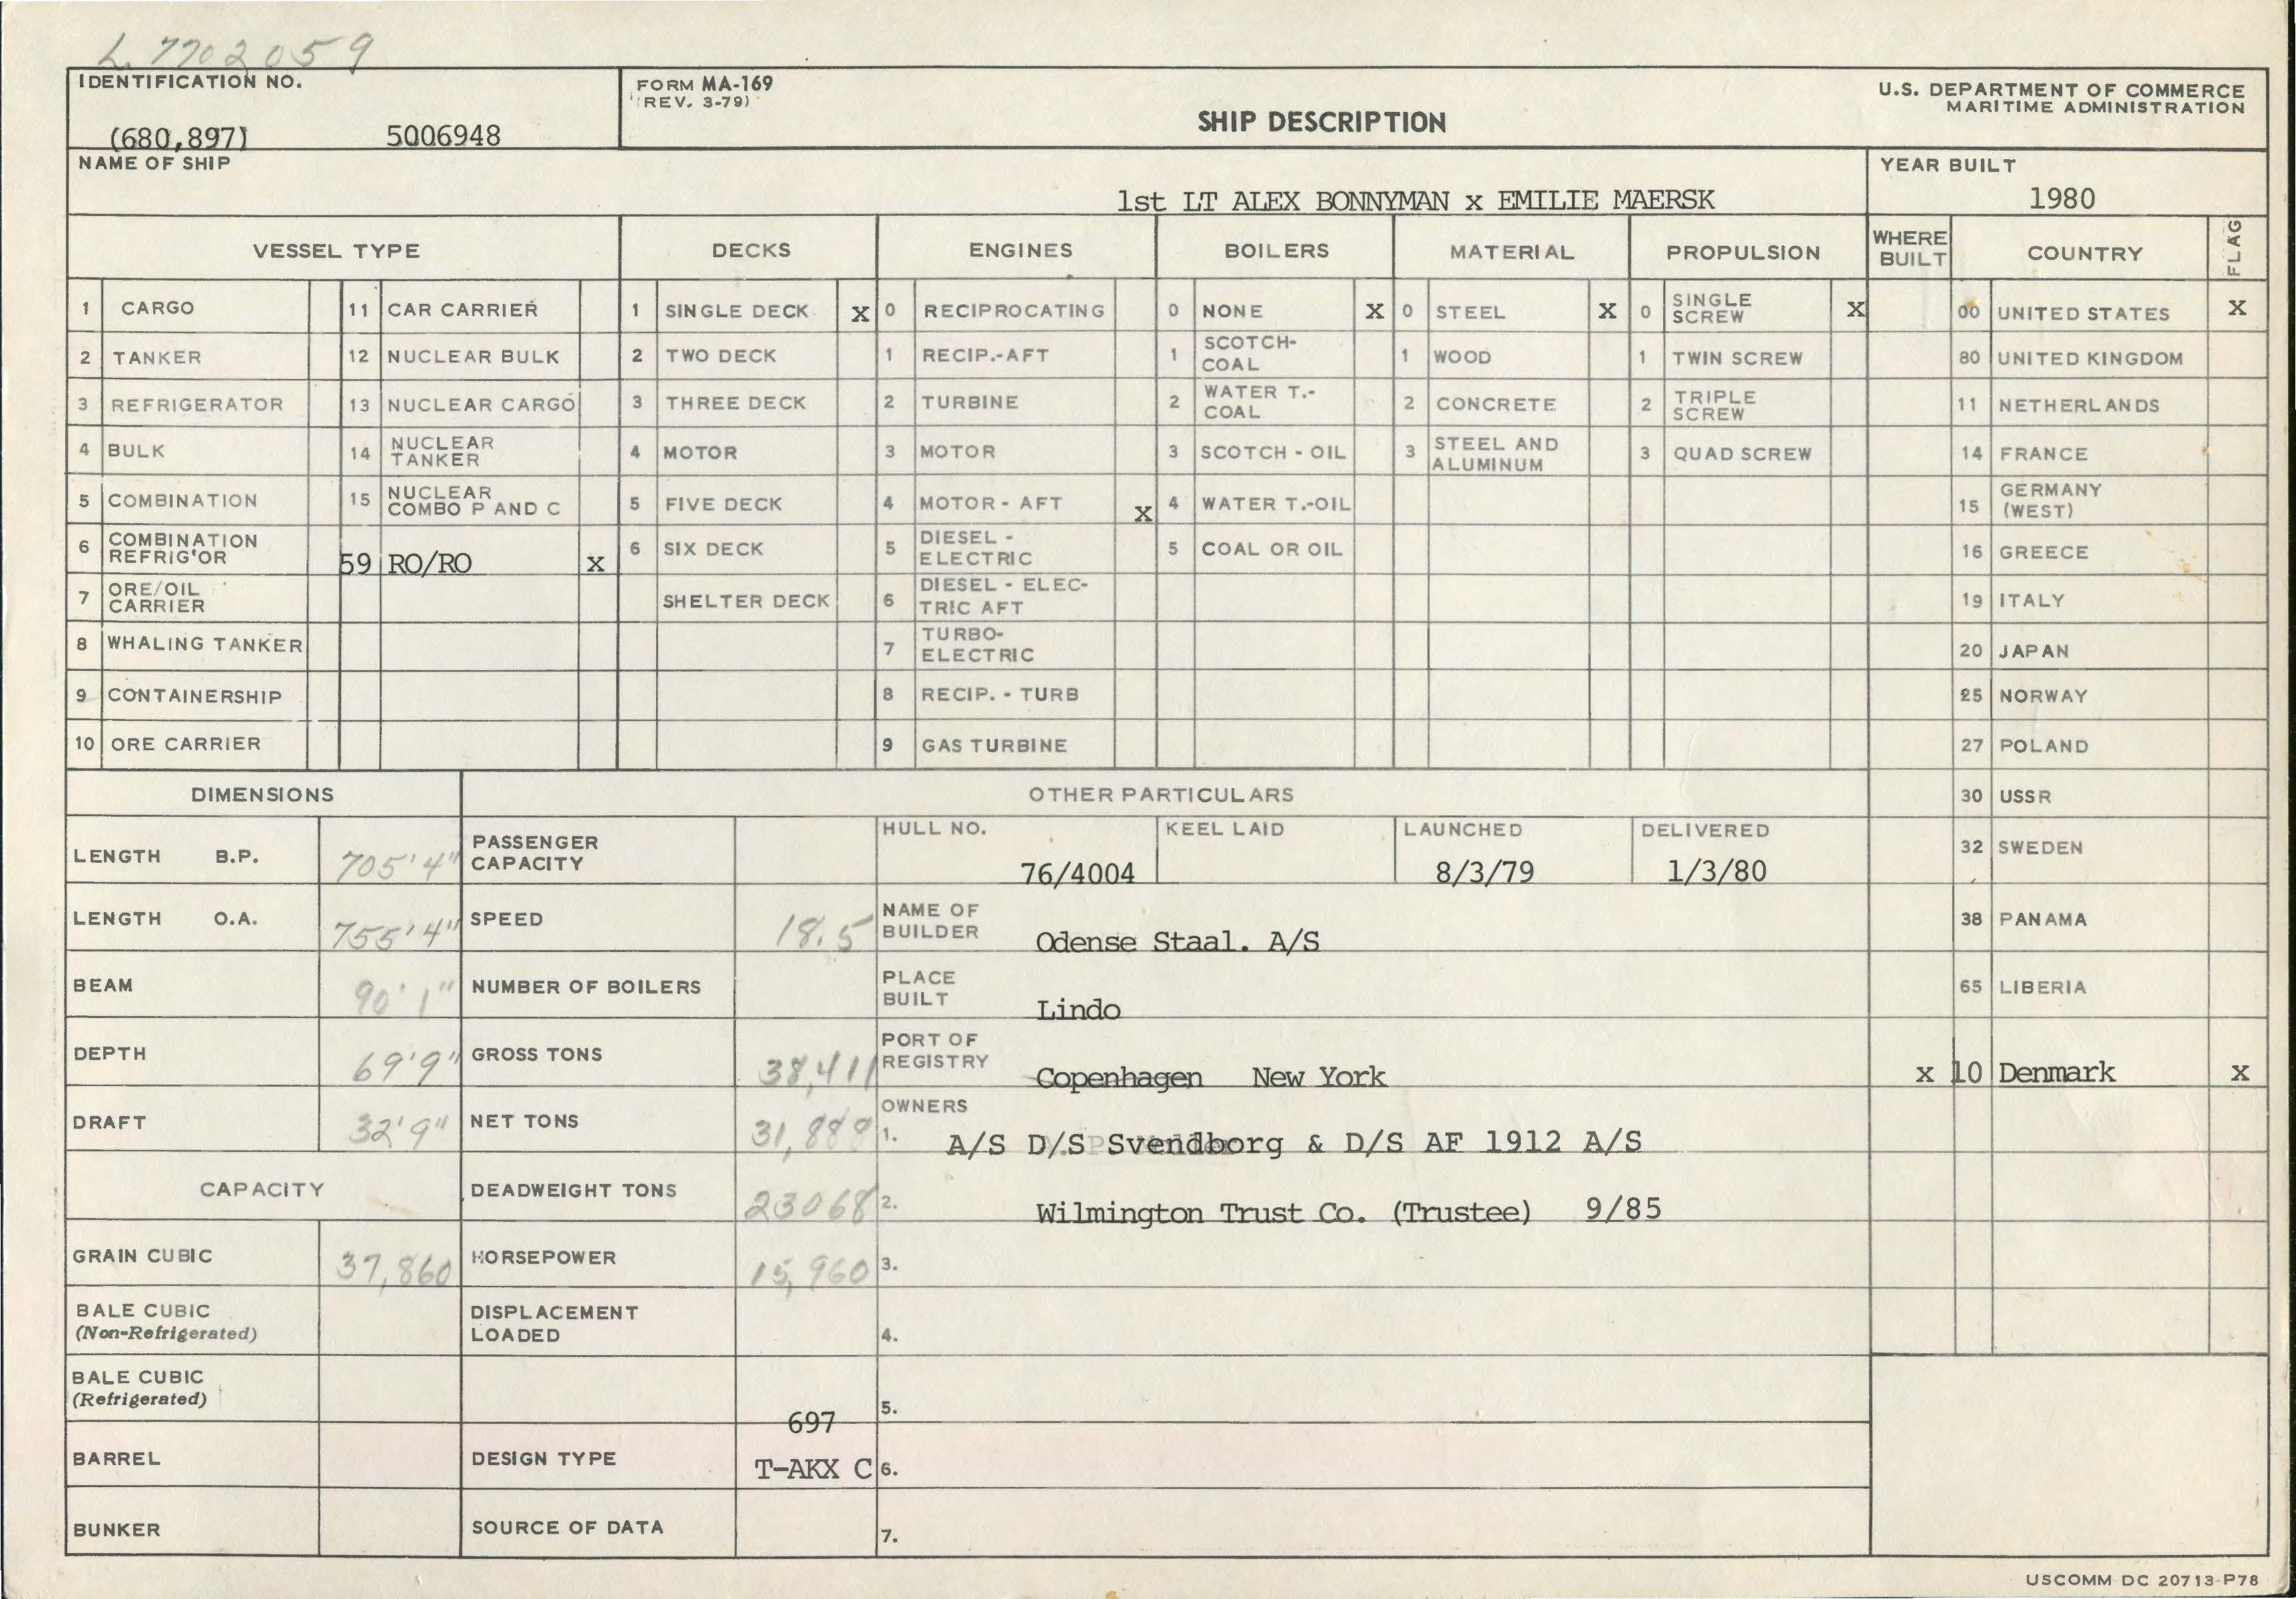 L. 7702059
IDENTIFICATION NO.
(680,897) 5006948
FORM MA-169
(REV. 3-79)
SHIP DESCRIPTION
U.S. DEPARTMENT OF COMMERCE
MARITIME ADMINISTRATION
NAME OF SHIP
1st LT ALEX BONNYMAN x EMILIE MAERSK
YEAR BUILT
1980
VESSEL TYPE DECKS ENGINES BOILERS MATERIAL PROPULSION WHERE BUILT COUNTRY FLAG
1 CARGO 11 CAR CARRIER 1 SINGLE DECK X 0 RECIPROCATING 0 NONE X 0 STEEL X 0 SINGLE SCREW X 00 UNITED STATES X
2 TANKER 12 NUCLEAR BULK 2 TWO DECK 1 RECIP.-AFT 1 SCOTCH-COAL 1 WOOD 1 TWIN SCREW 80 UNITED KINGDOM
3 REFRIGERATOR 13 NUCLEAR CARGO 3 THREE DECK 2 TURBINE 2 WATER T.-COAL 2 CONCRETE 2 TRIPLE SCREW 11 NETHERLANDS
4 BULK 14 NUCLEAR TANKER 4 MOTOR 3 MOTOR 3 SCOTCH - OIL 3 STEEL AND ALUMINUM 3 QUAD SCREW 14 FRANCE
5 COMBINATION 15 NUCLEAR COMBO P AND C 5 FIVE DECK 4 MOTOR - AFT X 4 WATER T.-OIL 15 GERMANY (WEST)
6 COMBINATION REFRIG'OR 59 RO/RO X 6 SIX DECK 5 DIESEL - ELECTRIC 5 COAL OR OIL 16 GREECE
7 ORE/OIL CARRIER SHELTER DECK 6 DIESEL - ELECTRIC AFT 19 ITALY
8 WHALING TANKER 7 TURBO-ELECTRIC 20 JAPAN
9 CONTAINERSHIP 8 RECIP. - TURB 25 NORWAY
10 ORE CARRIER 9 GAS TURBINE 27 POLAND
DIMENSIONS OTHER PARTICULARS 30 USSR
LENGTH B.P. 705'4" PASSENGER CAPACITY HULL NO. 76/4004 KEEL LAID LAUNCHED 8/3/79 DELIVERED 1/3/80 32 SWEDEN
LENGTH O.A. 755'4" SPEED 18.5 NAME OF BUILDER Odense Staal. A/S 38 PANAMA
BEAM 90'1" NUMBER OF BOILERS PLACE BUILT Lindo 65 LIBERIA
DEPTH 69'9" GROSS TONS 38,411 PORT OF REGISTRY Copenhagen New York X 10 Denmark X
DRAFT 32'9" NET TONS OWNERS 1. A/S D/S Svendborg & D/S AF 1912 A/S
CAPACITY DEADWEIGHT TONS 23068 2. Wilmington Trust Co. (Trustee) 9/85
GRAIN CUBIC 37,860 HORSEPOWER 15,960 3.
BALE CUBIC (Non-Refrigerated) DISPLACEMENT LOADED 4.
BALE CUBIC (Refrigerated) 5.
697
BARREL DESIGN TYPE T-AKX C 6.
BUNKER SOURCE OF DATA 7.
USCOMM-DC 20713-P78